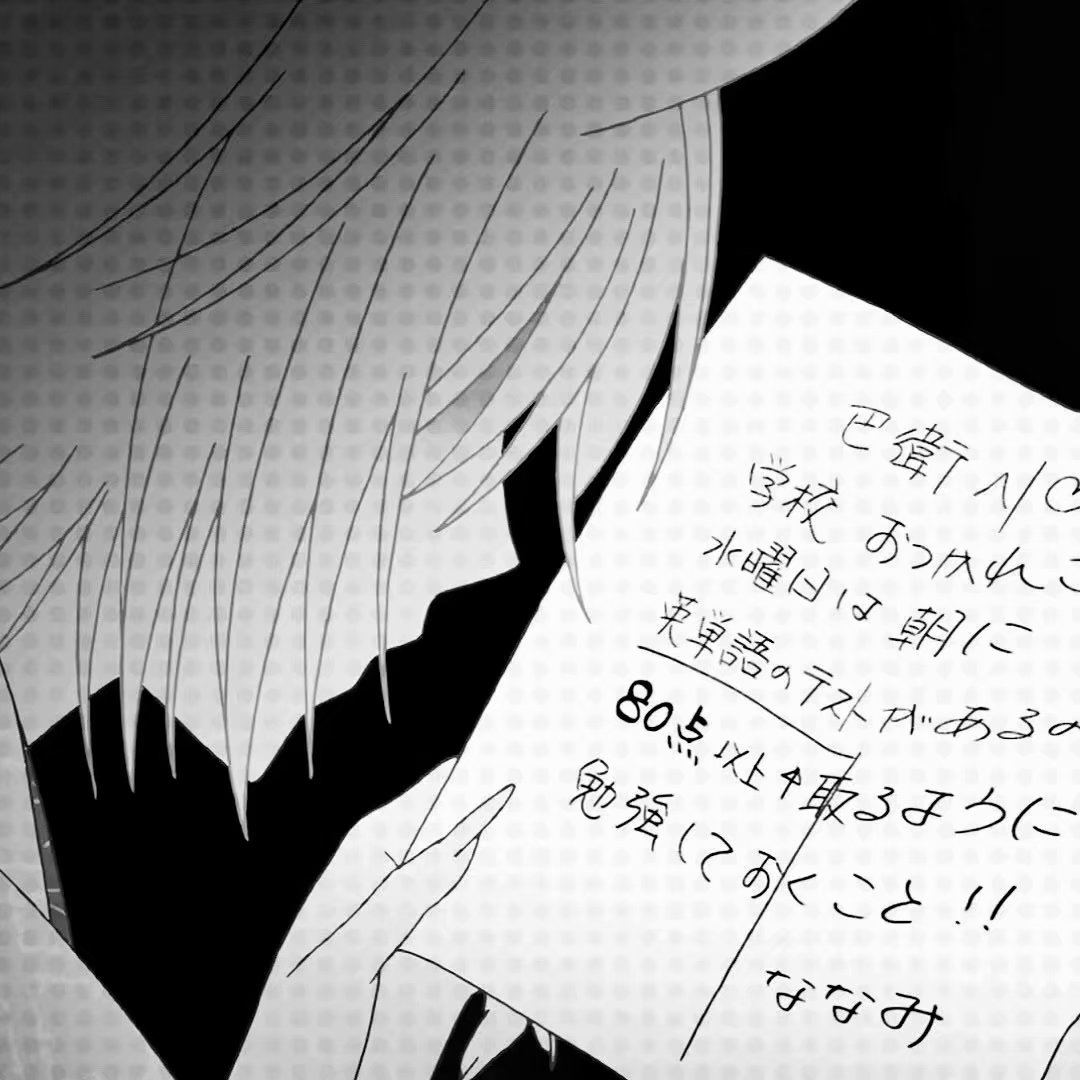 巴衛へ♡
学校おつかれさ
水曜日は朝に
英単語のテストがあるの
80点以上取るように
勉強しておくこと!!
ななみ